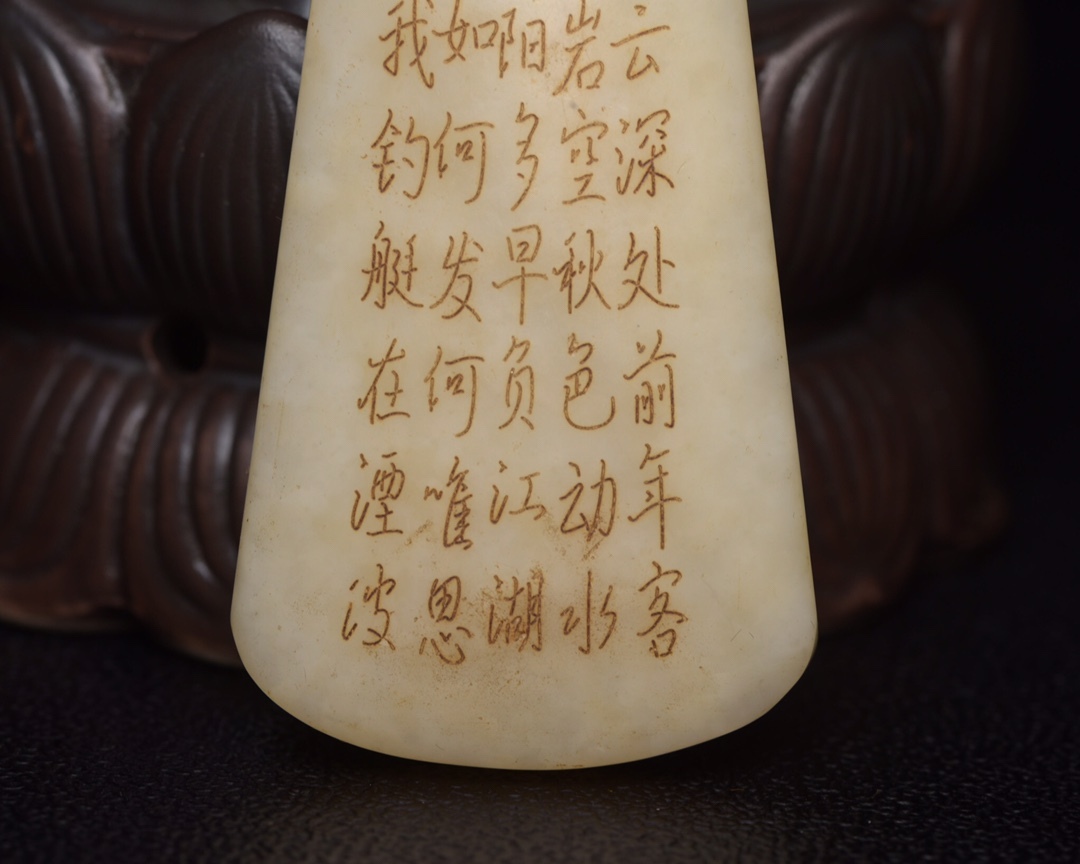 云深处前年客
岩空秋色动水
阳多早负江湖
如何发何唯思
我钓艇在湮波